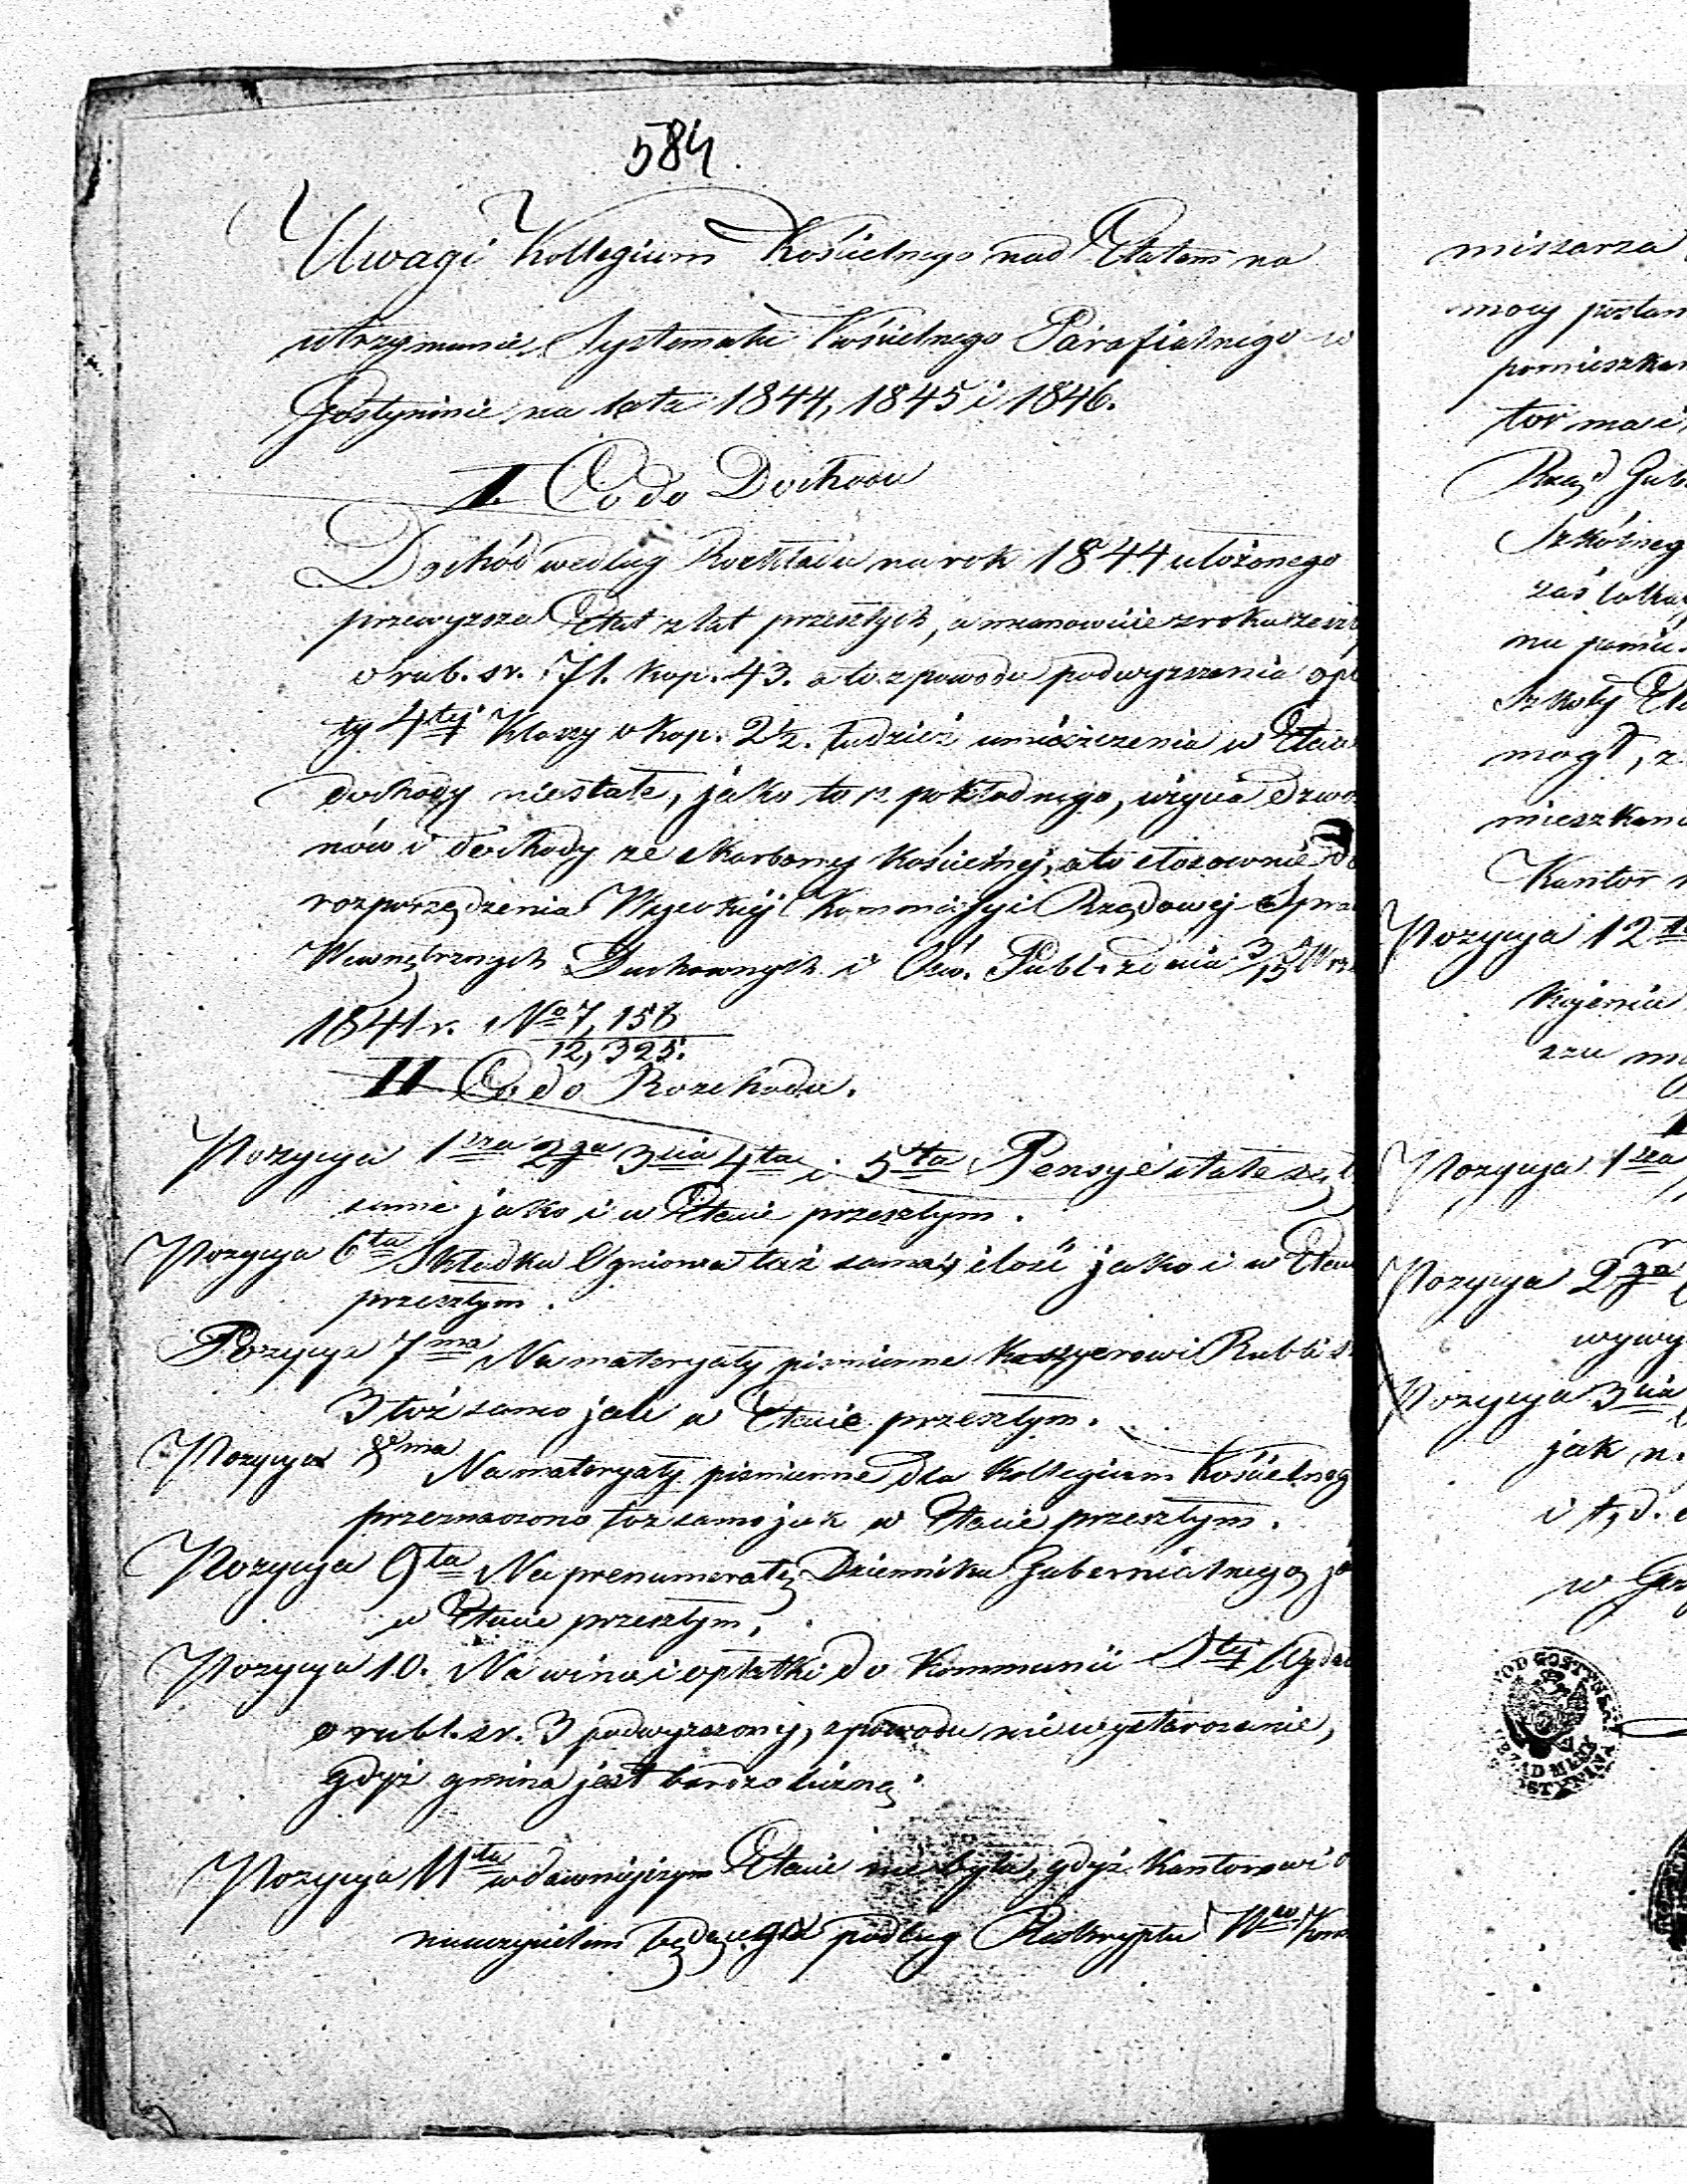 584.
Uwagi Kollegium Kościelnego nad Etatem na
utrzymanie Systematu Kościelnego Parafialnego w
Gostyninie na lata 1844, 1845 i 1846.
I Co do Dochodu
Dochód według Rozkładu na rok 1844 ułożonego
przewyzsza Etat z lat przeszłych, a mianowicie z roku zesz
o rub. sr. 71. kop. 43. a to z powodu podwyzszenia opł
ty 4tej Klassy o kop. 2½. tudzież umieszczenia w Etac
dochody niestałe, jako to z pokładnego, użycia dzwo
nów i dochody ze skarbony Kościelnej, a to stosownie do
rozporządzenia Wysokiej Kommissyi Rządowej Spra
Wewnętrznych Duchownych i Ośw. Publ. z dnia 3/15 Wrz
1841 r. No 7,158
12,325.
II Co do Rozchodu.
Pozycya 1sza 2ga 3cia 4ta i 5ta Pensye stałe są t
same jako i w Etacie przeszłym.
Pozycya 6ta Składka Ogniowa taż sama ilość jako i w Etac
przeszłym.
Pozycya 7ma Na materyały pismienne Kassyerowi Rubli s
3 toż samo jak w Etacie przeszłym.
Pozycya 8ma Na materyały pismienne dla Kollegium Kościelneg
przeznaczono toż samo jak w Etacie przeszłym.
Pozycya 9ta Na prenumeratę Dziennika Gubernialnego ja
w Etacie przeszłym,
Pozycya 10. Na wino i opłatki do Kommunii Stej Wyda
o rubl. sr. 3 podwyzszony, z powodu niewystarczenie,
gdyż gmina jest bardzo liczną
Pozycya 11ta w dawniejszym Etacie nie była, gdyż Kantorowi
nauczycielem będącego podług Reskryptu Wo Kom
miszarza
mocy postan
pomieszkan
tor ma i
Rząd Gub
Szkólneg
zaś lokaj
mu pomie
Szkoły El
mogł, z
mieszkan
Kantor
Pozycya 12ta
kojenia
szu
Pozycya 1sza
Pozycya 2ga
wywy
Pozycya 3cia
jak n.
i t, d.
w